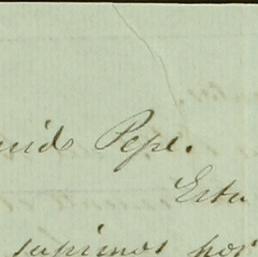 Pepe.
Esta
supimos por